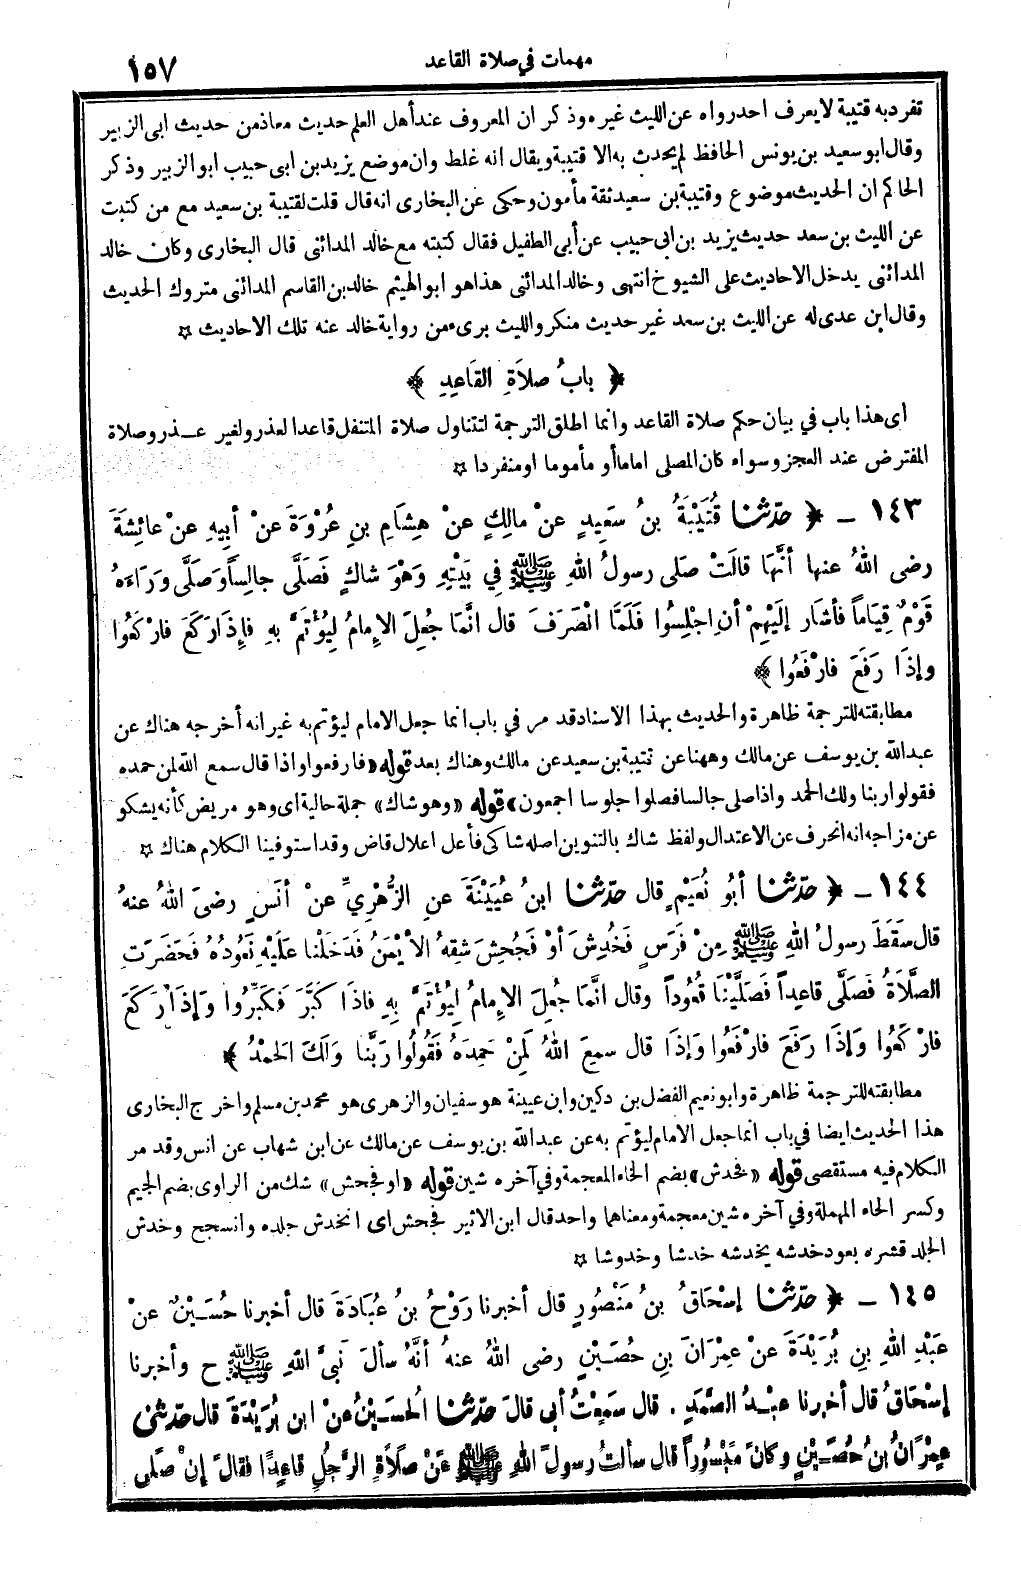 مهمات في صلاة القاعد ١٥٧
تفرد به قتيبة لا يعرف احد رواه عن الليث غيره وذكر ان المعروف عند أهل العلم حديث معاذ من حديث ابى الزبير
وقال ابو سعيد بن يونس الحافظ لم يحدث به الا قتيبة ويقال انه غلط وان موضع يزيد بن ابى حبيب ابو الزبير وذكر
الحاكم ان الحديث موضوع وقتيبة بن سعيد ثقة مأمون وحكى عن البخارى انه قال قلت لقتيبة بن سعيد مع من كتبت
عن الليث بن سعد حديث يزيد بن ابى حبيب عن أبى الطفيل فقال كتبته مع خالد المدائنى قال البخارى وكان خالد
المدائنى يدخل الاحاديث على الشيوخ انتهى وخالد المدائنى هذا هو ابو الهيثم خالد بن القاسم المدائنى متروك الحديث
وقال ابن عدى له عن الليث بن سعد غير حديث منكر والليث برىء من رواية خالد عنه تلك الاحاديث ☆
﴿ بابُ صلاَةِ القَاعِدِ ﴾
اى هذا باب في بيان حكم صلاة القاعد وانما اطلق الترجمة لتتناول صلاة المتنفل قاعدا لعذر ولغير عــذر وصلاة
المفترض عند العجز وسواء كان المصلى اماما أو مأموما او منفردا ☆
١٤٣ ـ ﴿ حدّثنا قُتَيْبَةُ بنُ سَعِيدٍ عنْ مالِكٍ عنْ هِشَامِ بنِ عُرْوَةَ عنْ أبِيهِ عنْ عائِشَةَ
رضى اللهُ عنها أنَّهَا قالَتْ صَلى رسولُ اللهِ ﷺ فِي بَيْتِهِ وَهْوَ شاكٍ فَصَلَّى جالِساً وَصَلَّى وَرَاءَهُ
قَوْمٌ قِيَاماً فأشَارَ إلَيْهِمْ أنِ اجْلِسُوا فَلَمَّا انْصَرَفَ قال انَّمَا جُعِلَ الإِمامُ لِيُؤْتَمَّ بهِ فإِذَا رَكَعَ فارْكَعُوا
وإذَا رَفَعَ فارْفَعُوا ﴾
مطابقته للترجمة ظاهرة والحديث بهذا الاسناد قد مر في باب انما جعل الامام ليؤتم به غير انه أخرجه هناك عن
عبد الله بن يوسف عن مالك وههنا عن قتيبة بن سعيد عن مالك وهناك بعد قوله «فارفعوا واذا قال سمع الله لمن حمده
فقولوا ربنا ولك الحمد واذا صلى جالسا فصلوا جلوسا اجمعون» قوله «وهو شاك» جملة حالية اى وهو مريض كأنه يشكو
عن مزاجه انه انحرف عن الاعتدال ولفظ شاك بالتنوين اصله شاكى فأعل اعلال قاض وقد استوفينا الكلام هناك ☆
١٤٤ ـ ﴿ حدّثنا أبُو نُعَيْمٍ قال حدّثنا ابنُ عُيَيْنَةَ عنِ الزُّهْرِيِّ عنْ أنَسٍ رضىَ اللهُ عنهُ
قال سَقَطَ رسولُ اللهِ ﷺ مِنْ فَرَسٍ فَخُدِشَ أوْ فَجُحِشَ شِقهُ الأَيْمَنُ فَدَخَلْنا عَلَيْهِ نَعُودُهُ فَحَضَرَتِ
الصَّلاَةُ فَصَلَّى قاعِداً فَصَلَّيْنَا قُعُوداً وقال انَّمَا جُعِلَ الإِمامُ لِيُؤْتَمَّ بهِ فاذَا كَبَّرَ فَكَبِّرُوا وَإذَا رَكَعَ
فارْكَعُوا وَإذَا رَفَعَ فارْفَعُوا وَإذَا قال سمِعَ اللهُ لِمَنْ حَمِدَهُ فَقُولُوا رَبَّنَا وَلَكَ الحَمْدُ ﴾
مطابقته للترجمة ظاهرة وابو نعيم الفضل بن دكين وابن عيينة هو سفيان والزهرى هو محمد بن مسلم واخرج البخارى
هذا الحديث ايضا في باب انما جعل الامام ليؤتم به عن عبد الله بن يوسف عن مالك عن ابن شهاب عن انس وقد مر
الكلام فيه مستقصى قوله «فخدش» بضم الخاء المعجمة وفي آخره شين قوله «او فجحش» شك من الراوى بضم الجيم
وكسر الحاء المهملة وفي آخره شين معجمة ومعناهما واحد قال ابن الاثير فجحش اى انخدش جلده وانسحج وخدش
الجلد قشره بعود خدشه يخدشه خدشا وخدوشا ☆
١٤٥ ـ ﴿ حدّثنا إسْحَاقُ بنُ مَنْصُورٍ قال أخبرنا رَوْحُ بنُ عُبَادَةَ قال أخبرنا حُسَــيْنٌ عنْ
عَبْدِ اللهِ بنِ بُرَيْدَةَ عنْ عِمْرَانَ بنِ حُصَــيْنٍ رضى اللهُ عنهُ أنَّهُ سألَ نَبيَّ اللهِ ﷺ ح وأخبرنا
إسْحَاقُ قال أخبرنا عبْــدُ الصَّمَدِ . قال سَمِعْتُ أبى قالَ حدّثنا الْحسَــيْنُ عنْ ابنِ بُرَيْدَةَ قال حدّثنى
عِمْرَانُ بنُ حُصَــيْنٍ وكانَ مَبْسُوراً قال سألتُ رسولَ اللهِ ﷺ عَنْ صَلاَةِ الرَّجُلِ قاعِدًا فقالَ إنْ صَلَّى